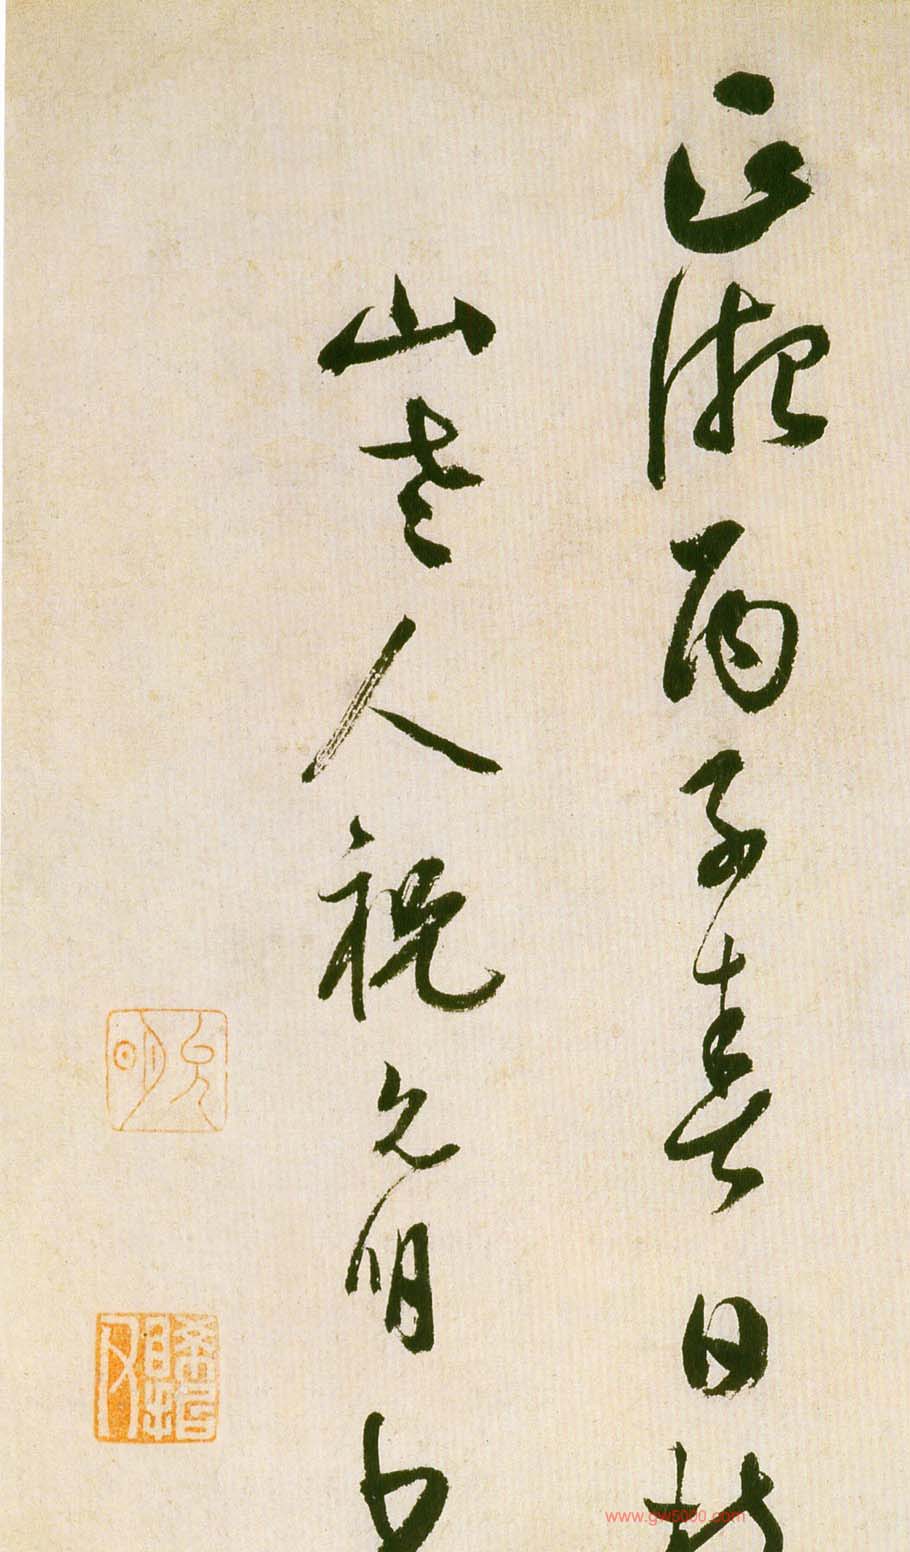 正德丙子春日枝
山老人祝允明書
允明
www.gw5000.com